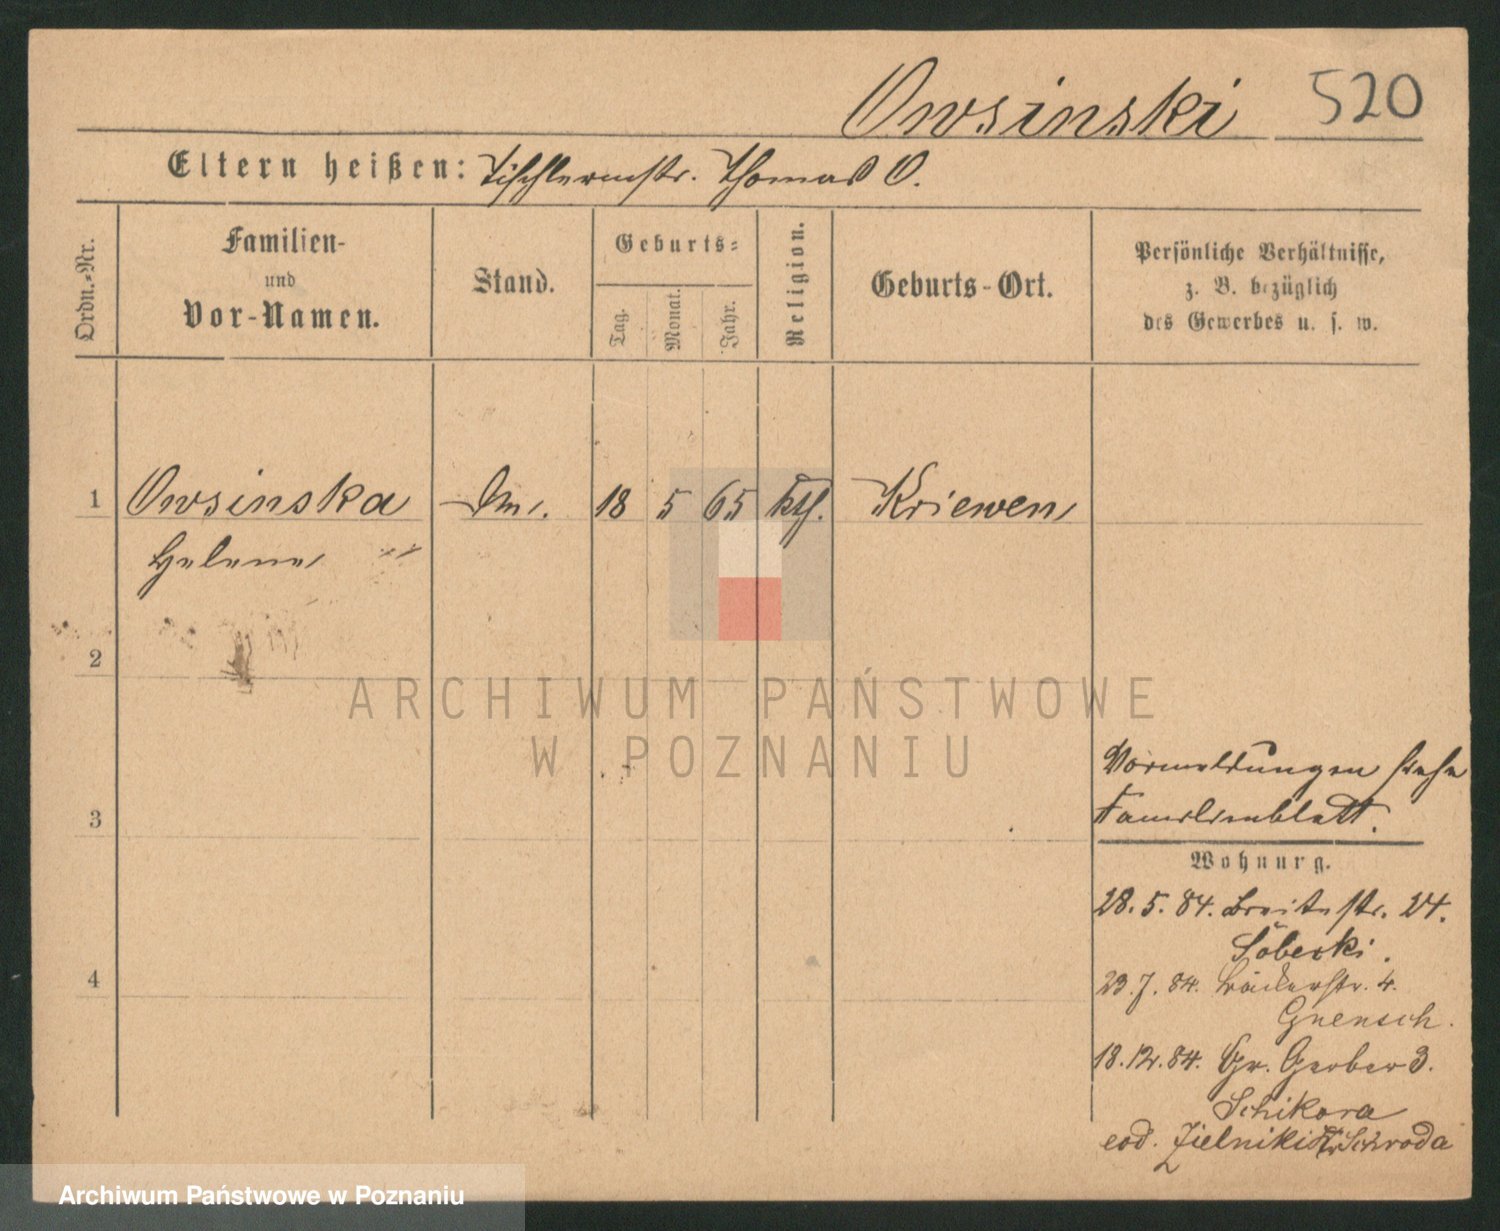 Owsinski 520
Eltern heißen: Tischlermstr. Thomas O.
Ordn.-Nr.
Familien-
und
Vor-Namen.
Stand.
Geburts-
Tag.
Monat.
Jahr.
Religion.
Geburts-Ort.
Persönliche Verhältnisse,
z. B. bezüglich
des Gewerbes u. s. w.
1 Owsinska 18 5 65 kth. Kriewen
Helene
2
ARCHIWUM PAŃSTWOWE
W POZNANIU
Vormeldungen siehe
3 Familienblatt.
Wohnung.
28. 5. 84. Breitestr. 24.
Sobecki.
4 23. 7. 84. Bäckerstr. 4.
Guensch.
18. 12. 84. Gr. Gerber 3.
Schikora
eod. Zielniki Kr. Schroda
Archiwum Państwowe w Poznaniu